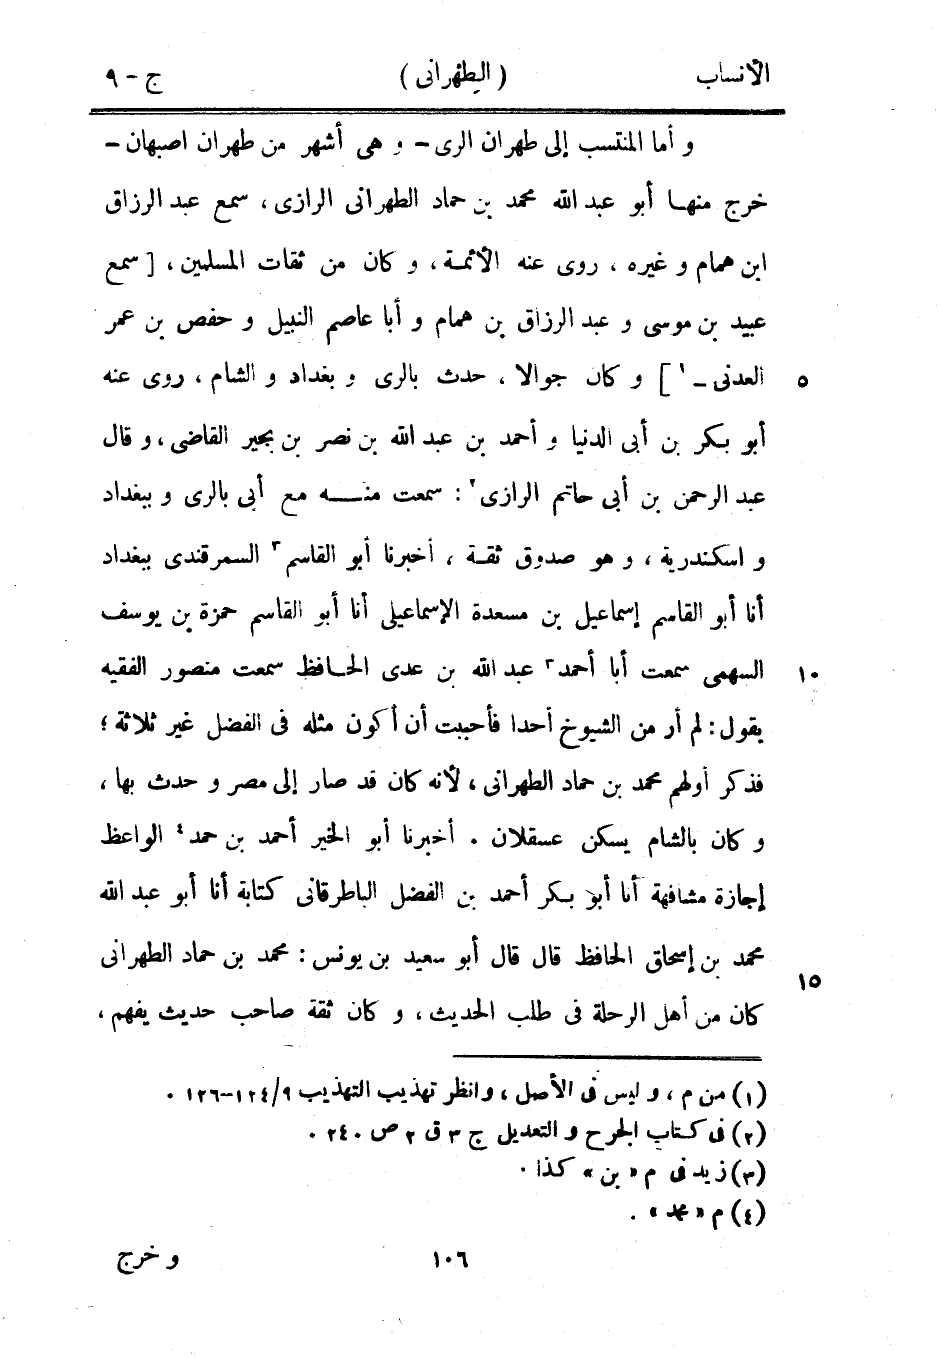 الأنساب ( الطهرانى ) ج - ٩
و أما المنتسب إلى طهران الرى - و هى أشهر من طهران اصبهان -
خرج منها أبو عبد الله محمد بن حماد الطهرانى الرازى ، سمع عبد الرزاق
ابن همام و غيره ، روى عنه الأئمة ، و كان من ثقات المسلمين ، [ سمع
عبيد بن موسى و عبد الرزاق بن همام و أبا عاصم النبيل و حفص بن عمر
العدنى - ١ ] و كان جوالا ، حدث بالرى و بغداد و الشام ، روى عنه ٥
أبو بكر بن أبى الدنيا و أحمد بن عبد الله بن نصر بن بجير القاضى ، و قال
عبد الرحمن بن أبى حاتم الرازى ٢ : سمعت منه مع أبى بالرى و ببغداد
و اسكندرية ، و هو صدوق ثقة ، أخبرنا أبو القاسم ٣ السمرقندى ببغداد
أنا أبو القاسم إسماعيل بن مسعدة الإسماعيلى أنا أبو القاسم حمزة بن يوسف
السهمى سمعت أبا أحمد ٣ عبد الله بن عدى الحافظ سمعت منصور الفقيه ١٠
يقول : لم أر من الشيوخ أحدا فأحببت أن أكون مثله فى الفضل غير ثلاثة ؛
فذكر أولهم محمد بن حماد الطهرانى ، لأنه كان قد صار إلى مصر و حدث بها ،
و كان بالشام يسكن عسقلان . أخبرنا أبو الخير أحمد بن حمد ٤ الواعظ
إجازة مشافهة أنا أبو بكر أحمد بن الفضل الباطرقانى كتابة أنا أبو عبد الله
محمد بن إسحاق الحافظ قال قال أبو سعيد بن يونس : محمد بن حماد الطهرانى
كان من أهل الرحلة فى طلب الحديث ، و كان ثقة صاحب حديث يفهم ، ١٥
(١) من م ، و ليس فى الأصل ، و انظر تهذيب التهذيب ٩/ ١٢٤-١٢٦ .
(٢) فى كتاب الجرح و التعديل ج ٣ ق ٢ ص ٢٤٠ .
(٣) زيد فى م « بن » كذا .
(٤) م « محمد » .
١٠٦ و خرج